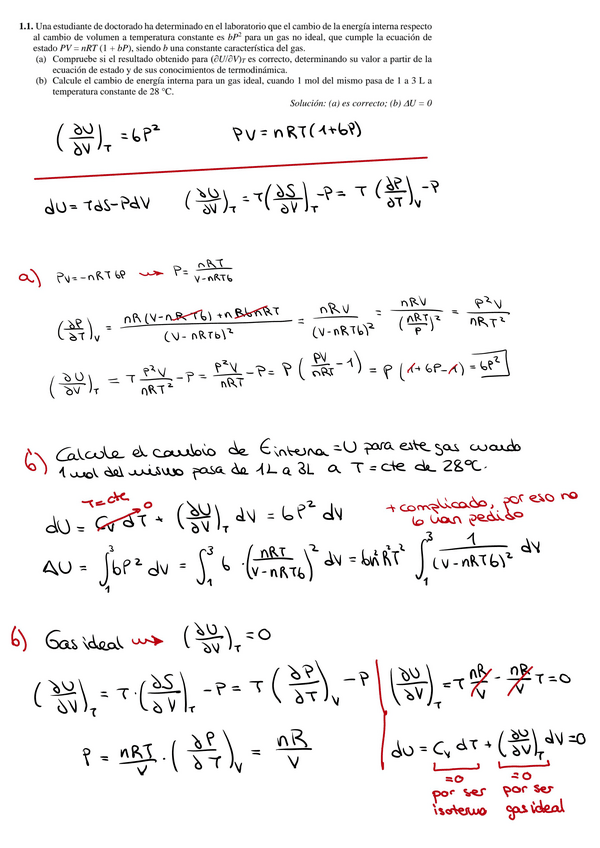 1.1. Una estudiante de doctorado ha determinado en el laboratorio que el cambio de la energía interna respecto
al cambio de volumen a temperatura constante es bP² para un gas no ideal, que cumple la ecuación de
estado PV = nRT (1 + bP), siendo b una constante característica del gas.
(a) Compruebe si el resultado obtenido para (∂U/∂V)T es correcto, determinando su valor a partir de la
ecuación de estado y de sus conocimientos de termodinámica.
(b) Calcule el cambio de energía interna para un gas ideal, cuando 1 mol del mismo pasa de 1 a 3 L a
temperatura constante de 28 °C.
Solución: (a) es correcto; (b) ΔU = 0
(∂U/∂V)_T = bP² PV = nRT(1+bP)
dU = TdS - PdV (∂U/∂V)_T = T(∂S/∂V)_T - P = T(∂P/∂T)_V - P
a) PV = -nRT bP → P = nRT/(V-nRTb)
(∂P/∂T)_V = (nR(V-nRTb) + nRbnRT)/(V-nRTb)² = nRV/(V-nRTb)² = nRV/(nRT/P)² = P²V/nRT²
(∂U/∂V)_T = T P²V/nRT² - P = P²V/nRT - P = P(PV/nRT - 1) = P(1+bP-1) = bP²
b) Calcule el cambio de Einterna = U para este gas cuando
1 mol del mismo pasa de 1L a 3L a T = cte de 28ºC.
T=cte
dU = Cv dT + (∂U/∂V)_T dV = bP² dV
0
+ complicado, por eso no
lo van pedido
ΔU = ∫₁³ bP² dV = ∫₁³ b · (nRT/(V-nRTb))² dV = bn²R²T² ∫₁³ 1/(V-nRTb)² dV
b) Gas ideal → (∂U/∂V)_T = 0
(∂U/∂V)_T = T·(∂S/∂V)_T - P = T(∂P/∂T)_V - P
P = nRT/V · (∂P/∂T)_V = nR/V
(∂U/∂V)_T = T nR/V - nR/V T = 0
dU = Cv dT + (∂U/∂V)_T dV = 0
=0 =0
por ser por ser
isotermo gas ideal